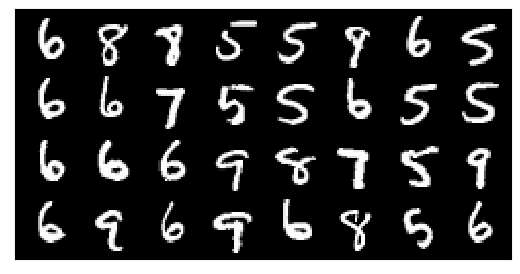 6 8 8 5 5 9 6 5
6 6 7 5 5 6 5 5
6 6 6 9 8 7 5 9
6 9 6 9 6 8 5 6